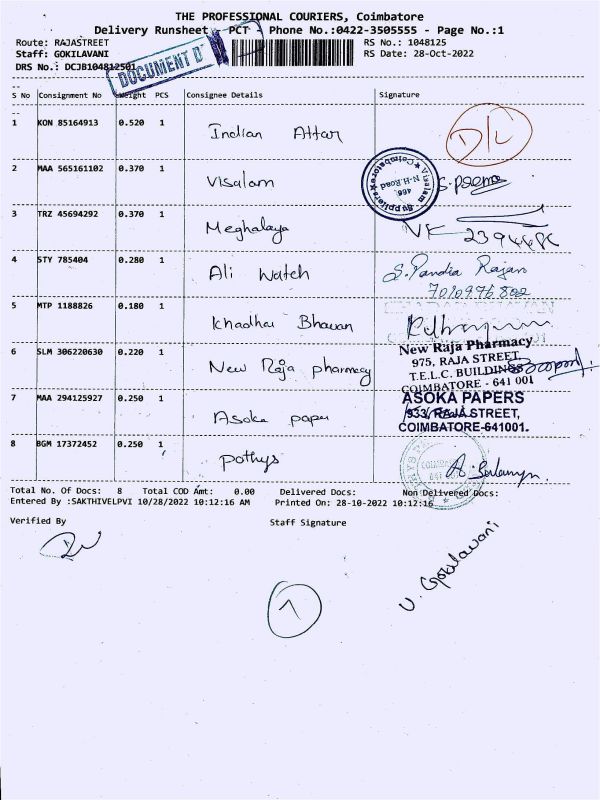 THE PROFESSIONAL COURIERS, Coimbatore
Delivery Runsheet - PCT - Phone No.:0422-3505555 - Page No.:1
Route: RAJASTREET RS No.: 1048125
Staff: GOKILAVANI RS Date: 28-Oct-2022
DRS No.: DCJB104812501
DOCUMENT D
S No Consignment No Weight PCS Consignee Details Signature
1 KON 85164913 0.520 1 Indian Attar D/L
2 MAA 565161102 0.370 1 Visalam
Visalam Suppliers
466, N-H.Road
Coimbatore
3 TRZ 45694292 0.370 1 Meghalaya
4 STY 785404 0.280 1 Ali Watch S. Pandia Rajan
7010976802
5 MTP 1188826 0.180 1 Khadhai Bhavan
6 SLM 306220630 0.220 1 New Raja pharmacy
New Raja Pharmacy
975, RAJA STREET,
T.E.L.C. BUILDINGS
COIMBATORE - 641 001
7 MAA 294125927 0.250 1 Asoka paper
ASOKA PAPERS
933, RAJA STREET,
COIMBATORE-641001.
8 BGM 17372452 0.250 1 Pothys
Total No. Of Docs: 8 Total COD Amt: 0.00 Delivered Docs: Non Delivered Docs:
Entered By :SAKTHIVELPVI 10/28/2022 10:12:16 AM Printed On: 28-10-2022 10:12:16
Verified By Staff Signature
U. Gokilavani
7